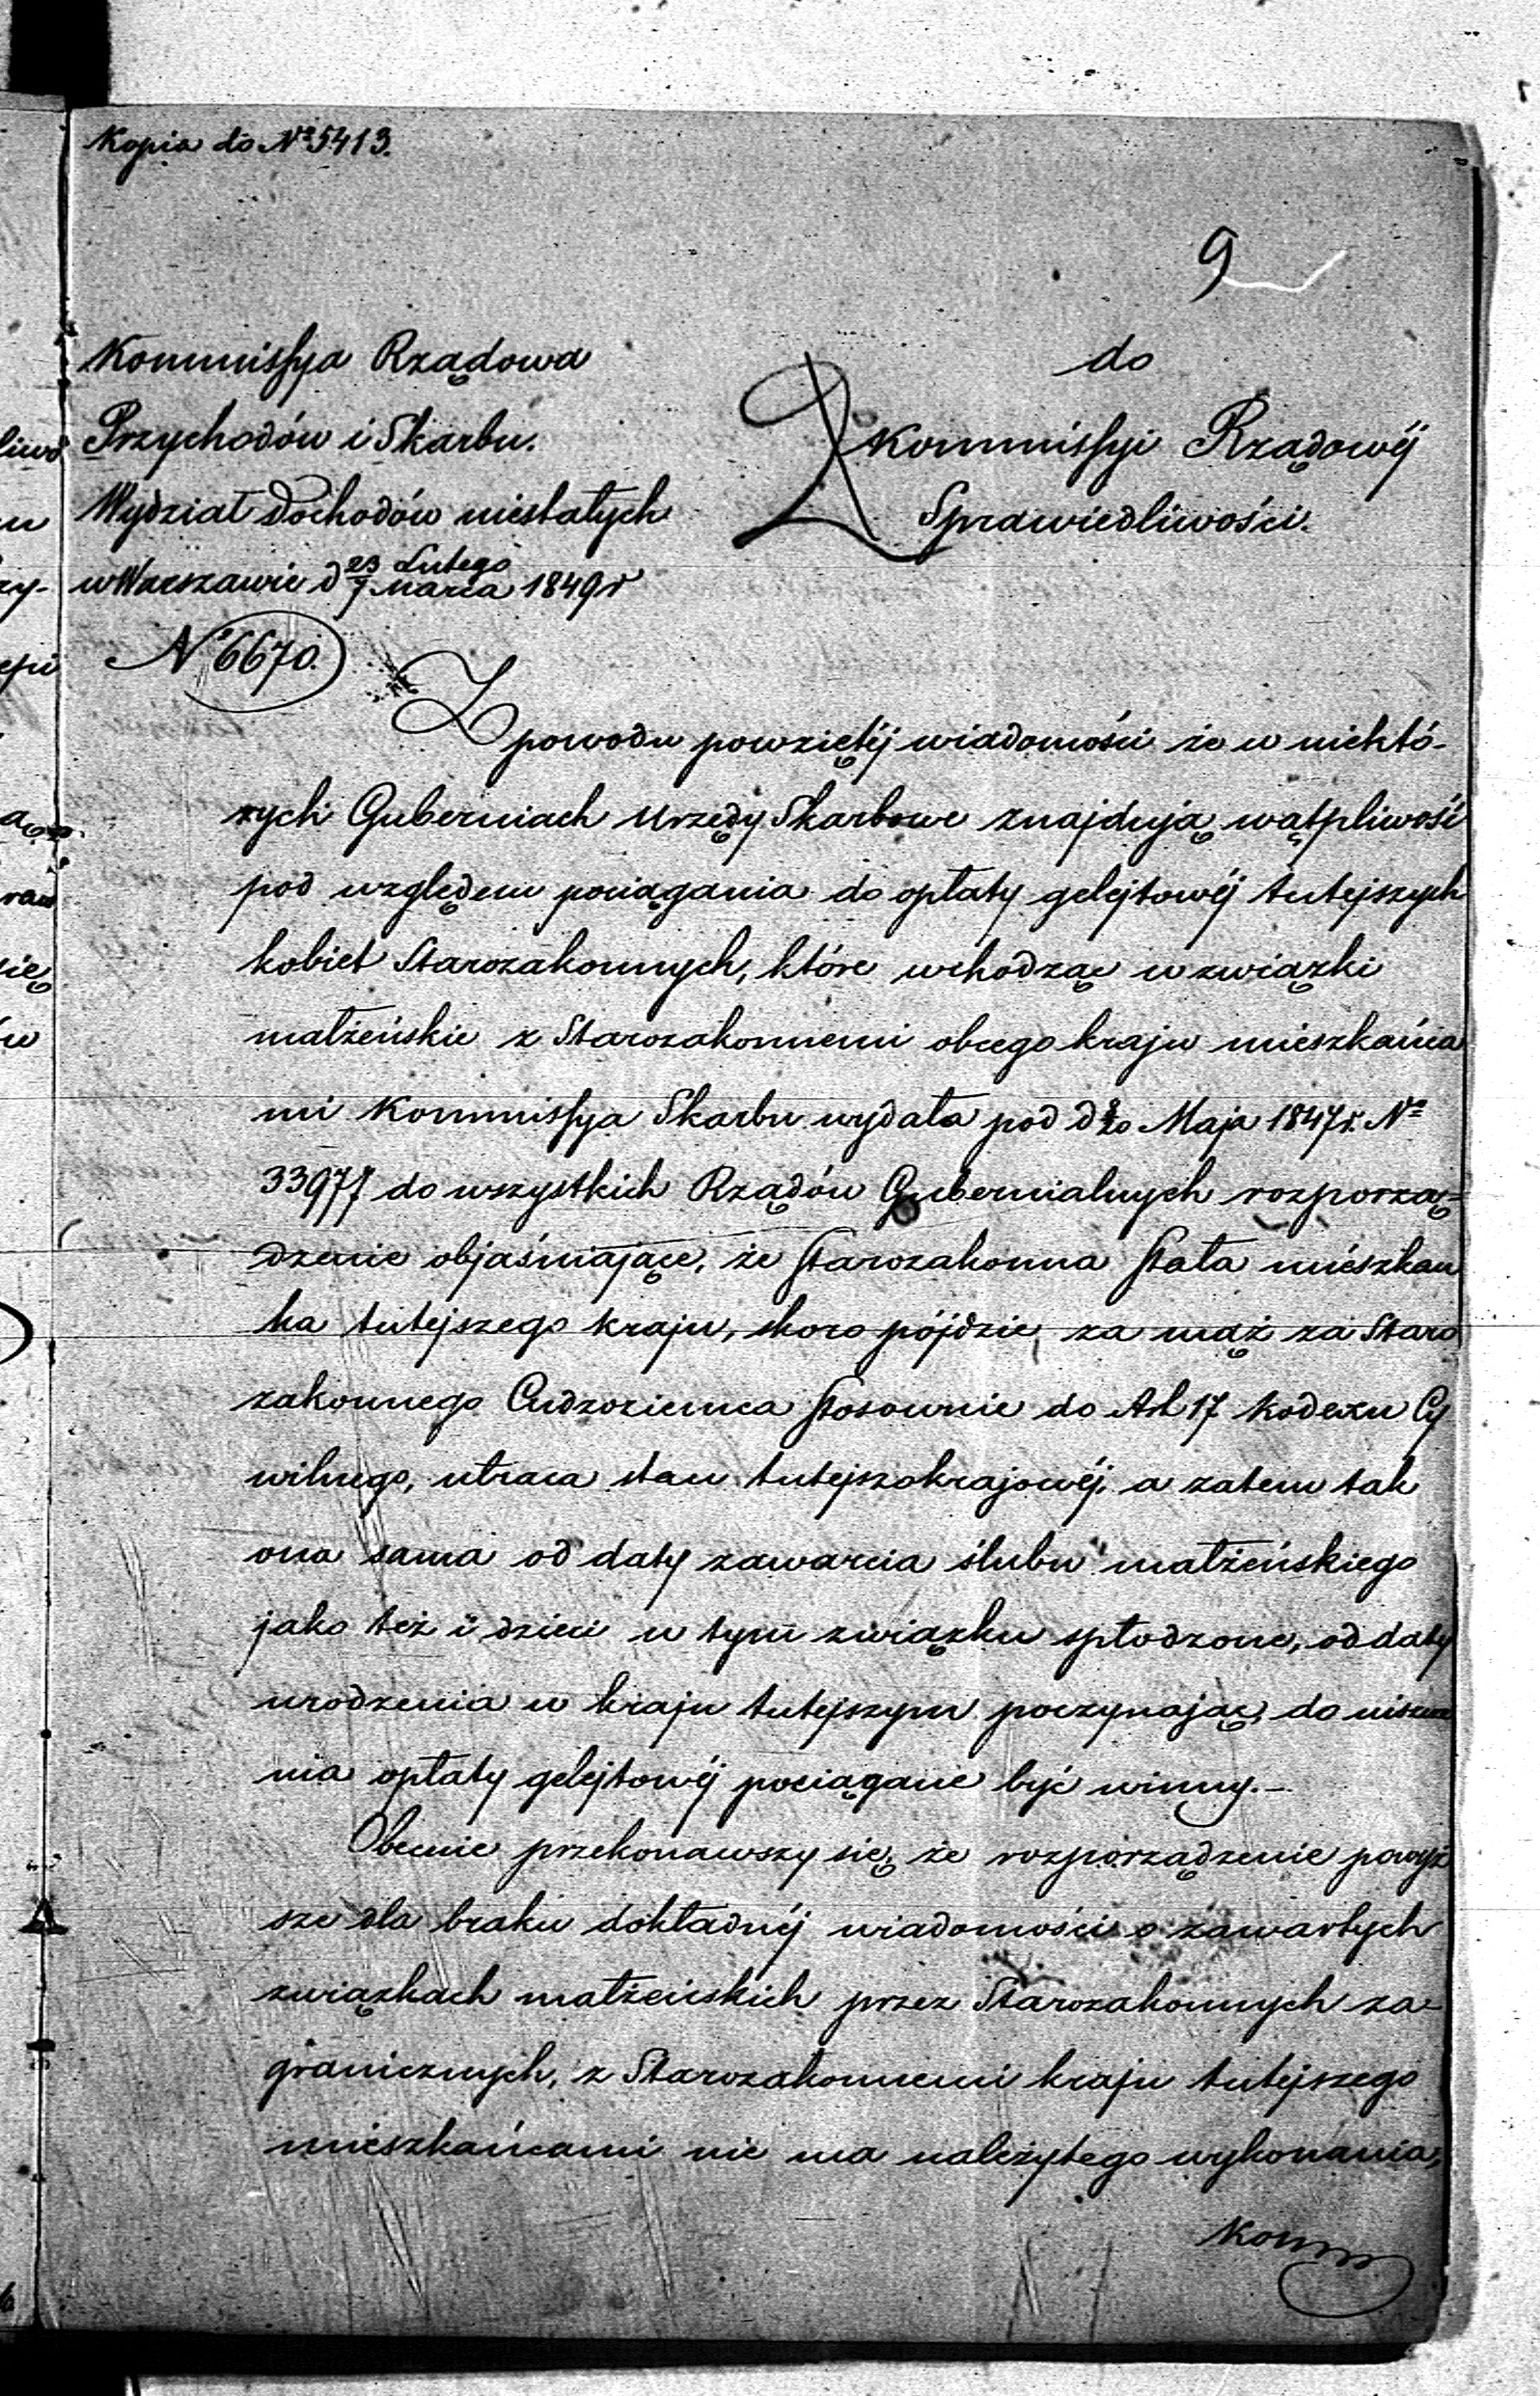 Kopia do Nº 5413.
9
Kommissya Rządowa
Przychodów i Skarbu.
Wydział Dochodów niestałych
w Warszawie d 23 Lutego / 7 Marca 1849 r
Nº 6670.
do
Kommissyi Rządowéj
Sprawiedliwości.
Z powodu powziętéj wiadomości że w niektó-
rych Guberniach Urzędy Skarbowe znajdują wątpliwość
pod względem pociągania do opłaty gelejtowéj tutejszych
kobiet Starozakonnych, które wchodząc w związki
małżeńskie z Starozakonnemi obcego kraju mieszkańca
mi Kommissya Skarbu wydała pod d 8/20 Maja 1847 r. Nº
33977 do wszystkich Rządów Gubernialnych rozporzą-
dzenie objaśniające, że starozakonna stała mieszkan
ka tutejszego kraju, skoro pójdzie za mąż za Staro
zakonnego Cudzoziemca stosownie do Art 17 Kodexu Cy
wilnego, utraca stan tutejszokrajowéj, a zatem tak
ona sama od daty zawarcia ślubu małżeńskiego
jako też i dzieci w tym związku spłodzone, od daty
urodzenia w kraju tutejszym poczynając, do uiszcza
nia opłaty gelejtowéj pociągane być winny.-
Obecnie przekonawszy się, że rozporządzenie powyż
sze dla braku dokładnéj wiadomości o zawartych
związkach małżeńskich przez Starozakonnych za-
granicznych, z Starozakonnemi kraju tutejszego
mieszkańcami nie ma należytego wykonania,
Komm